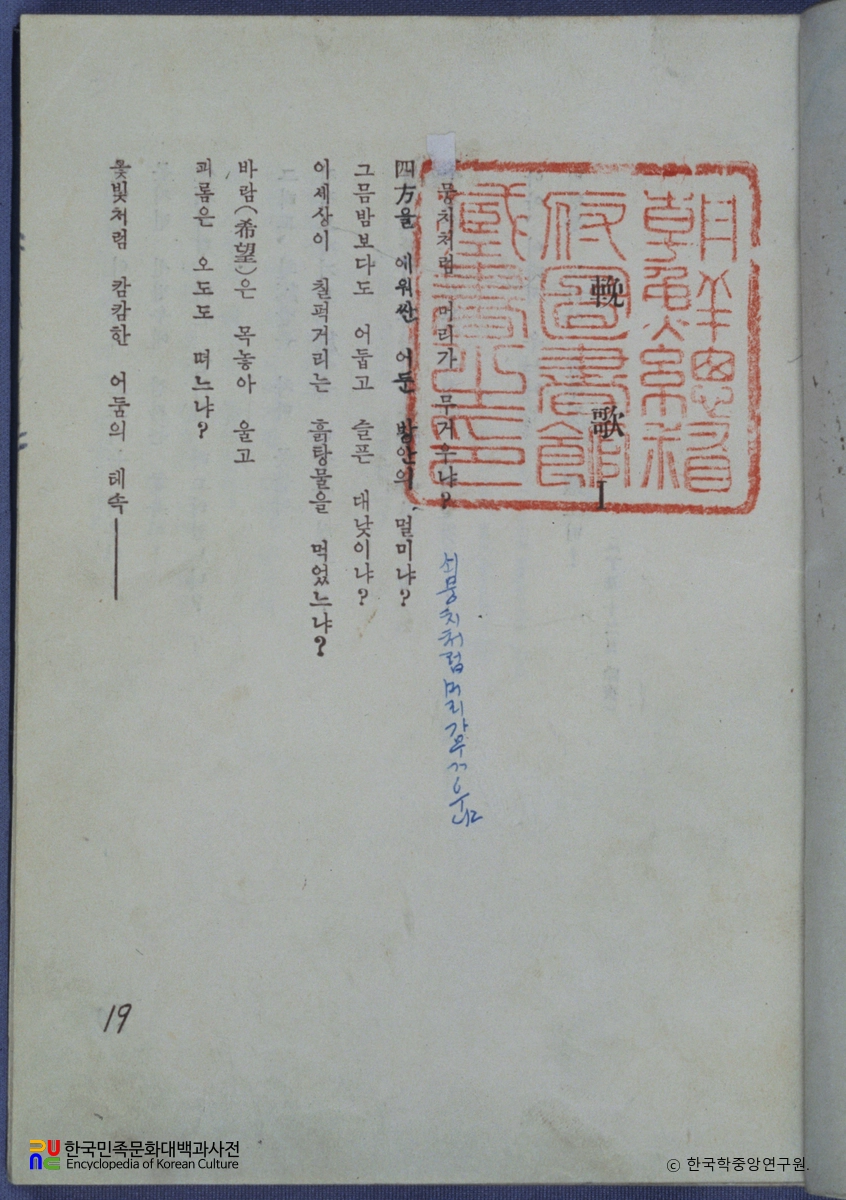 輓歌 I
쇠뭉치처럼 머리가 무거우냐?
四方을 에워싼 어둔 방안의 멀미냐?
그믐밤보다도 어둡고 슬픈 대낮이냐?
이세상이 칠퍽거리는 흙탕물을 먹었느냐?
바람(希望)은 목놓아 울고
괴롬은 오도도 떠느냐?
옻빛처럼 캄캄한 어둠의 테속——
朝鮮總督府圖書館藏書之印
쇠뭉치처럼 머리가 무거우냐
19
한국민족문화대백과사전
Encyclopedia of Korean Culture
© 한국학중앙연구원.